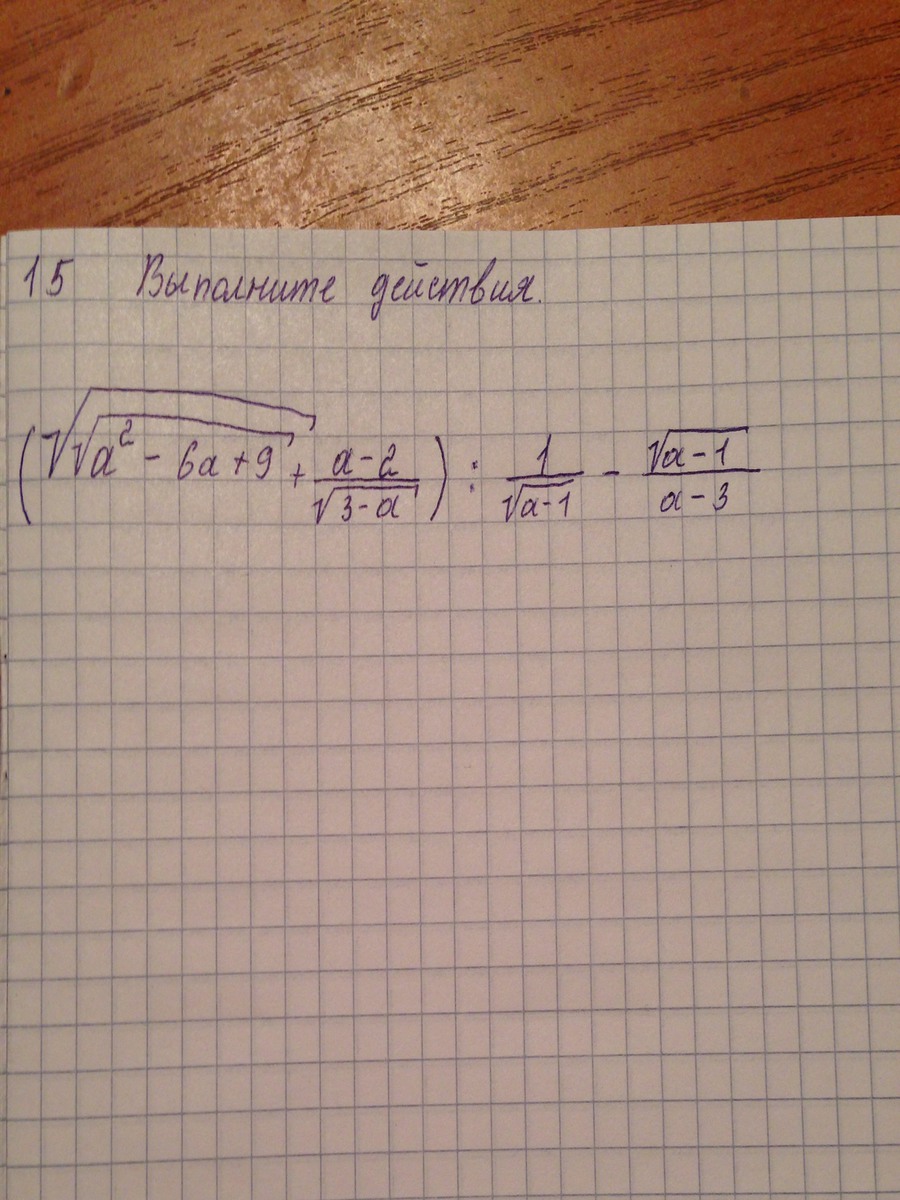 15 Выполните действия.
(√√a² - 6a + 9 + a-2/√3-a) : 1/√a-1 - √a-1/a-3